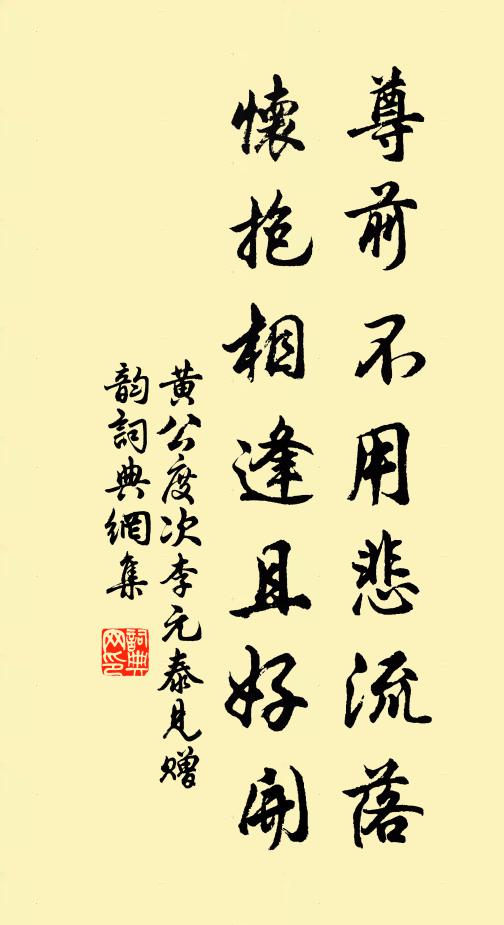 尊前不用悲流落
懷抱相逢且好開
黄公度次李元泰見贈
韵詞典網集
詞典
网印